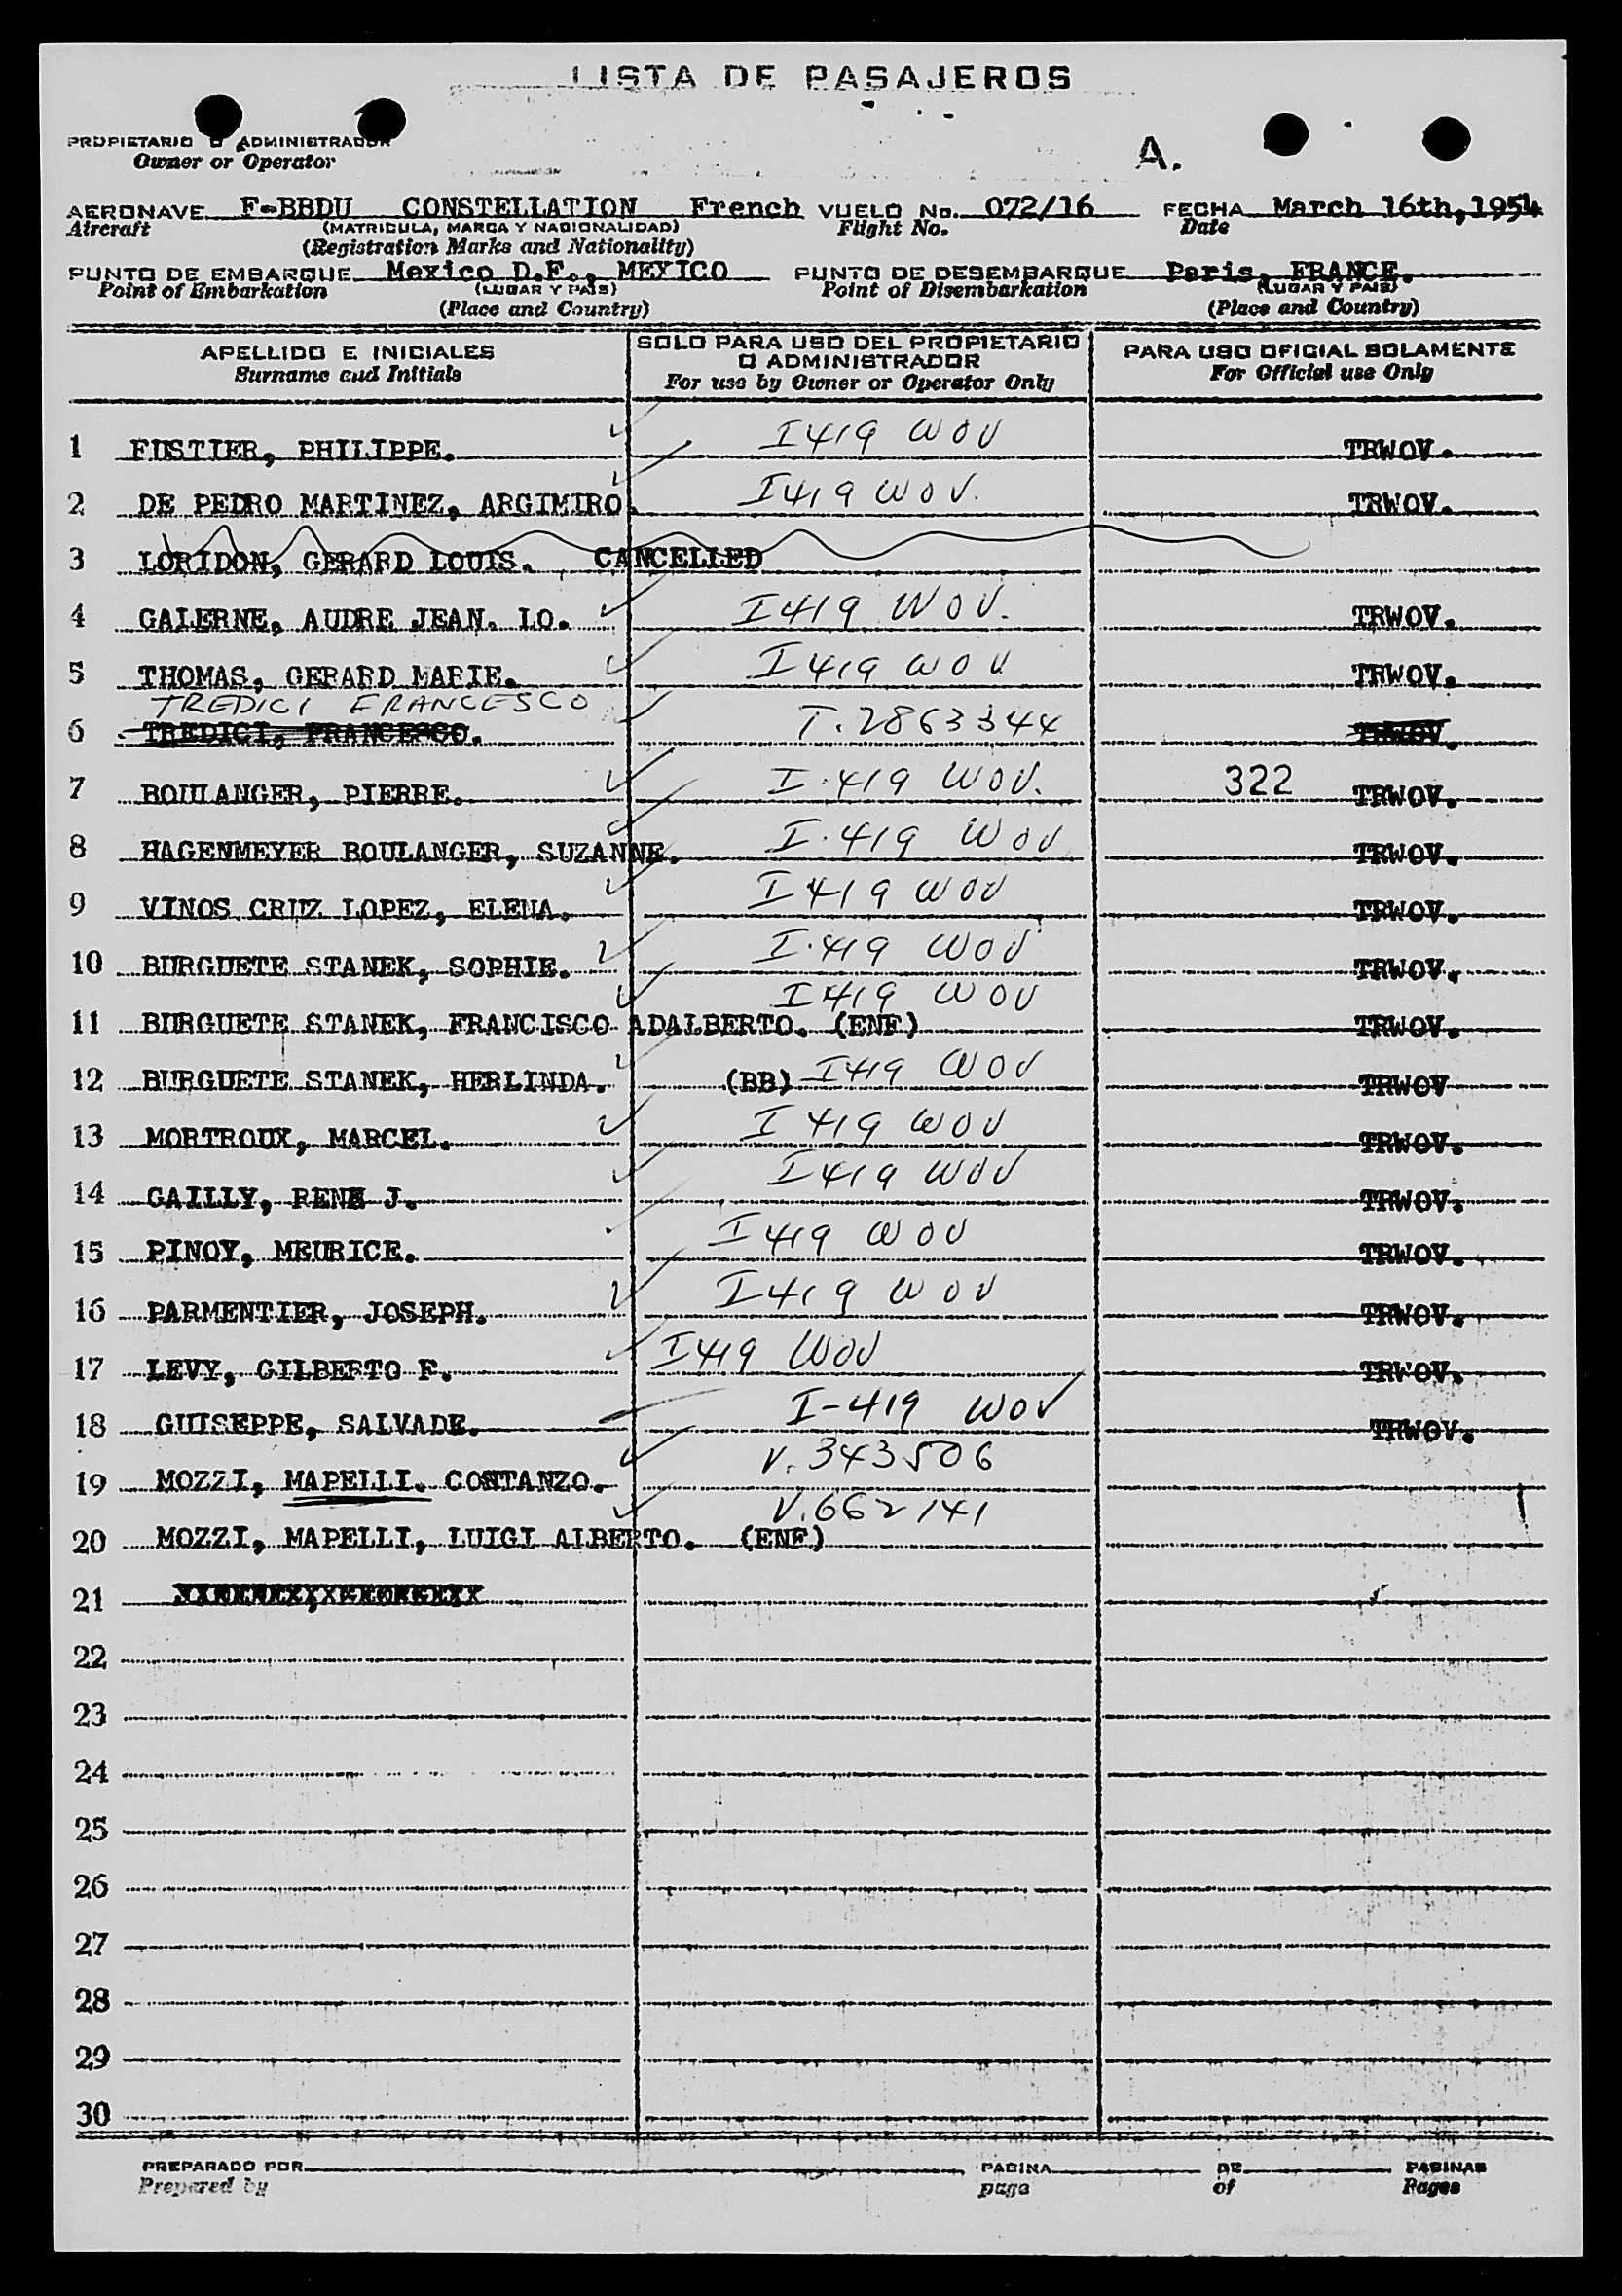 LISTA DE PASAJEROS
PROPIETARIO O ADMINISTRADOR
Owner or Operator
A.
AERONAVE F-BBDU CONSTELLATION French VUELO No. 072/16 FECHA March 16th, 1954
Aircraft (MATRICULA, MARCA Y NACIONALIDAD) Flight No. Date
(Registration Marks and Nationality)
PUNTO DE EMBARQUE Mexico D.F., MEXICO PUNTO DE DESEMBARQUE Paris, FRANCE.
Point of Embarkation (LUGAR Y PAIS) Point of Disembarkation (LUGAR Y PAIS)
(Place and Country) (Place and Country)
APELLIDO E INICIALES SOLO PARA USO DEL PROPIETARIO O ADMINISTRADOR PARA USO OFICIAL SOLAMENTE
Surname and Initials For use by Owner or Operator Only For Official use Only
1 FUSTIER, PHILIPPE. I419 WOV TRWOV.
2 DE PEDRO MARTINEZ, ARGIMIRO. I419 WOV. TRWOV.
3 LORIDON, GERARD LOUIS. CANCELLED
4 GALERNE, AUDRE JEAN. LO. I419 WOV. TRWOV.
5 THOMAS, GERARD MARIE. I419 WOV TRWOV.
TREDICI FRANCESCO
6 TREDICI, FRANCESCO. T.2863344 TRWOV.
7 BOULANGER, PIERRE. I.419 WOV. 322 TRWOV.
8 HAGENMEYER BOULANGER, SUZANNE. I.419 WOV TRWOV.
9 VINOS CRUZ LOPEZ, ELENA. I419 WOV TRWOV.
10 BURGUETE STANEK, SOPHIE. I.419 WOV TRWOV.
I419 WOV
11 BURGUETE STANEK, FRANCISCO ADALBERTO. (ENF) TRWOV.
12 BURGUETE STANEK, HERLINDA. (BB) I419 WOV TRWOV
13 MORTROUX, MARCEL. I419 WOV TRWOV.
14 GAILLY, RENE J. I419 WOV TRWOV.
15 PINOY, MEURICE. I419 WOV TRWOV.
16 PARMENTIER, JOSEPH. I419 WOV TRWOV.
17 LEVY, GILBERTO F. I419 WOV TRWOV.
18 GUISEPPE, SALVADE. I-419 WOV TRWOV.
19 MOZZI, MAPELLI. COSTANZO. V.343506
V.662141
20 MOZZI, MAPELLI, LUIGI ALBERTO. (ENF)
21
22
23
24
25
26
27
28
29
30
PREPARADO POR PAGINA DE PAGINAS
Prepared by page of Pages